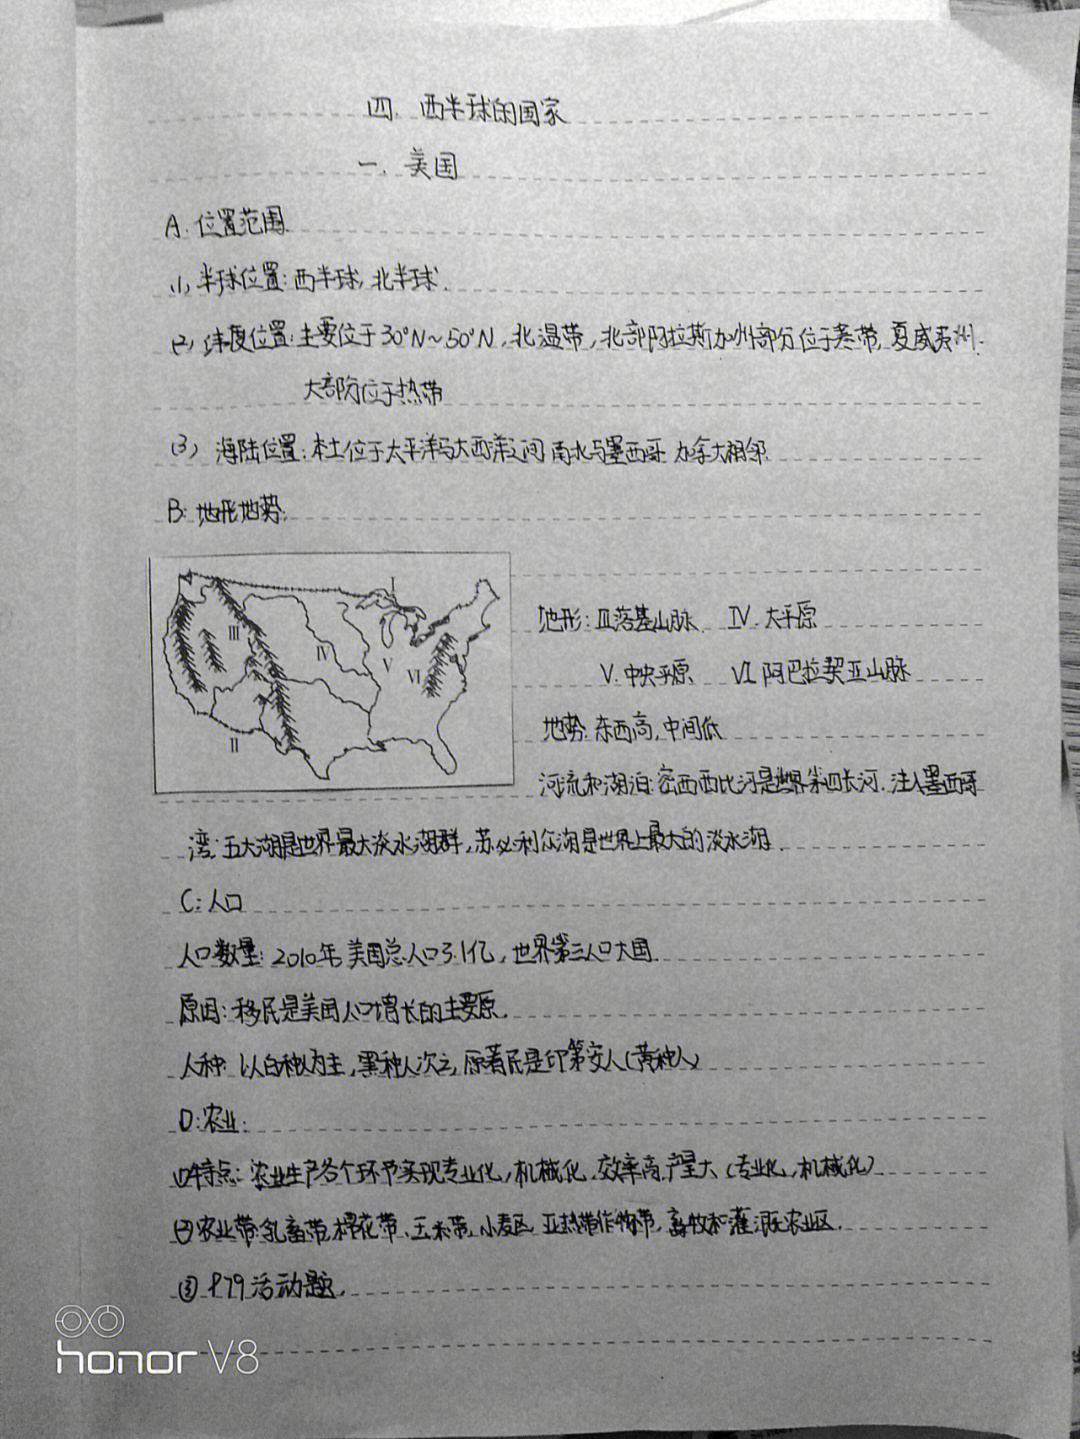 四. 西半球的国家
一. 美国
A. 位置范围
(1) 半球位置: 西半球, 北半球.
(2) 纬度位置: 主要位于30°N~50°N, 北温带, 北部阿拉斯加州部分位于寒带, 夏威夷州
大部分位于热带
(3) 海陆位置: 本土位于太平洋与大西洋之间 南北与墨西哥 加拿大相邻
B: 地形地势:
I
II
III
IV
V
VI
地形: III.落基山脉 IV. 大平原
V. 中央平原 VI. 阿巴拉契亚山脉
地势: 东西高, 中间低
河流和湖泊: 密西西比河是世界第四长河. 注入墨西哥
湾; 五大湖是世界最大淡水湖群, 苏必利尔湖是世界上最大的淡水湖.
C: 人口
人口数量: 2010年美国总人口3.1亿, 世界第三人口大国.
原因: 移民是美国人口增长的主要原.
人种: 以白种人为主, 黑种人次之, 原著民是印第安人(黄种人)
D: 农业:
①特点: 农业生产各个环节实现专业化, 机械化. 效率高. 产量大 (专业化, 机械化)
②农业带: 乳畜带, 棉花带、玉米带, 小麦区. 亚热带作物带, 畜牧和灌溉农业区.
③P79活动题.
honor V8